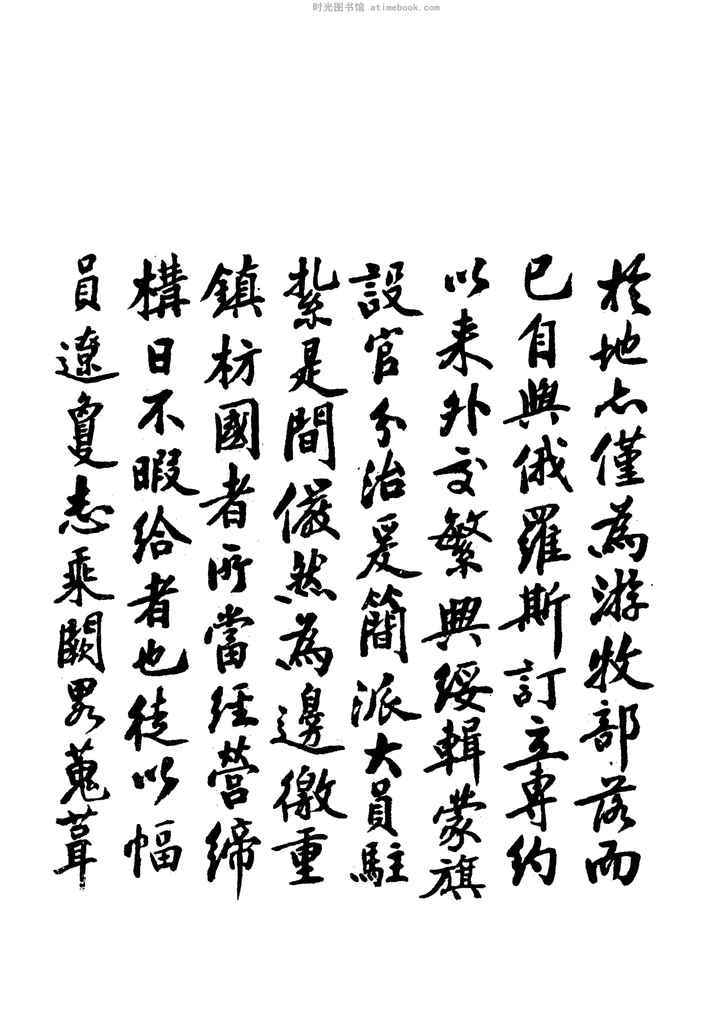 时光图书馆 atimebook.com
於地志僅為游牧部落而
已自與俄羅斯訂立專約
以来外交繁興綏輯蒙旗
設官分治爰簡派大員駐
紮是間儼然為邊徼重
鎮枋國者所當經营締
構日不暇给者也徒以幅
員遼敻志乘闕畧蒐葺